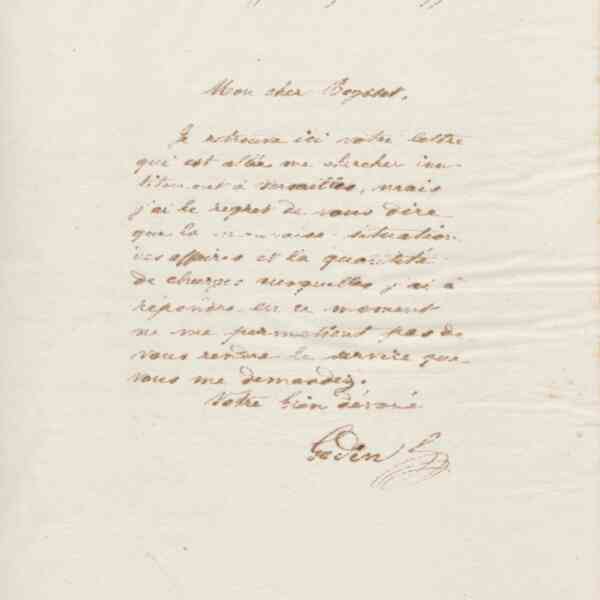 Mon cher Boysset,
Je retrouve ici votre lettre
qui est allée me chercher inu-
tilement à Versailles, mais
j'ai le regret de vous dire
que la mauvaise situation
des affaires et la quantité
de charges auxquelles j'ai à
répondre en ce moment
ne me permettent pas de
vous rendre le service que
vous me demandez.
Votre bien dévoué
Godin